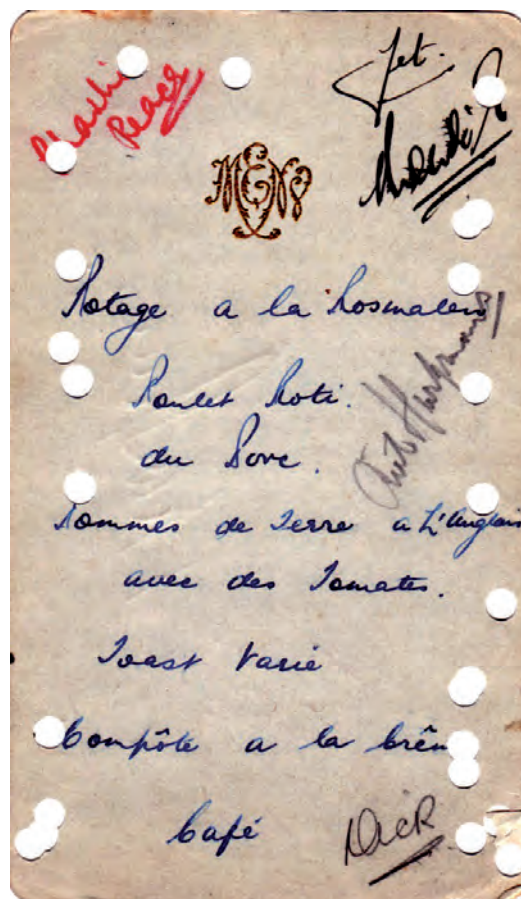 Peace
Jet.
MENU
Potage a la Rosmalen
Poulet Roti.
du Porc.
Pommes de Terre a L'Anglais
avec des Tomates.
Toast Varié
Compôte a la Crêm
Café
Dick